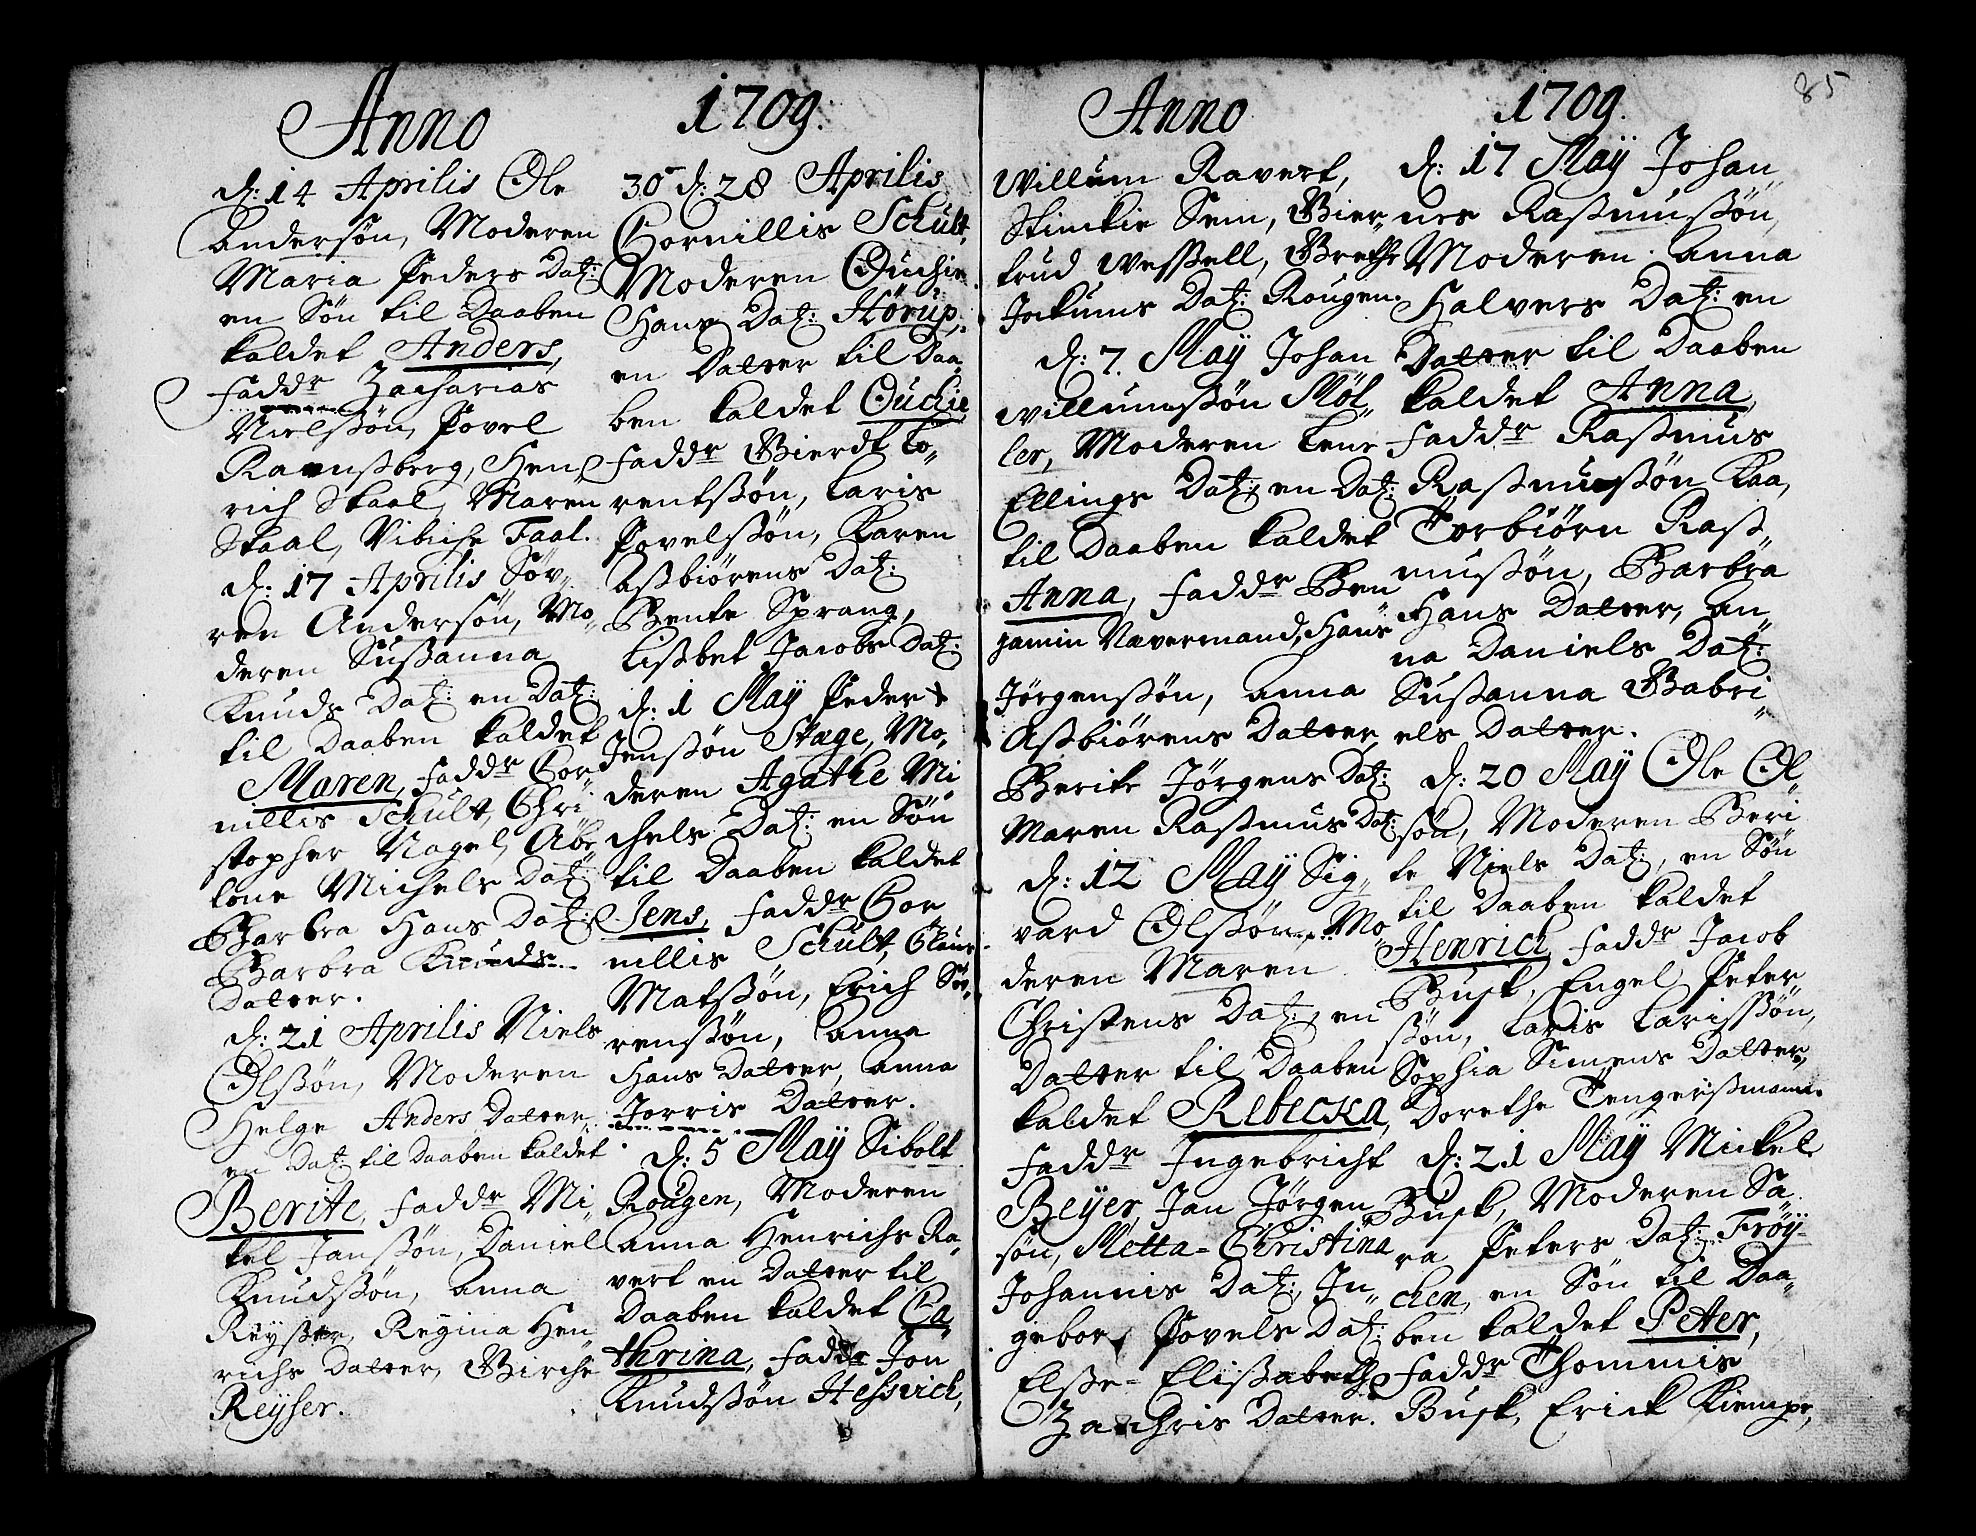 Anno 1709.
d: 14 Aprilis Ole
Andersøn, Moderen
Maria Peders Dat:
en Søn til Daaben
kaldet Anders,
Faddr Zacharias
Nielssøn, Povel
Ravnsberg, Hen
rich Skaal, Maren
Skaal, Vibiche Faal.
d: 17 Aprilis Søv„
ren Andersøn, Mo„
deren Susanna
Knuds Dat: en Dat:
til Daaben kaldet
Maren, Faddr Cor
nillis Schult, Chri
stopher Nagel, Abe
lone Michels Dat:
Barbra Hans Dat:
Barbra Knuds
Datter.
d: 21 Aprilis Niels
Olssøn, Moderen
Helge Anders Datter,
en Dat: til Daaben kaldet
Berite, Faddr Mi„
kel Janssøn, Daniel
Knudssøn, Anna
Reysser, Regina Hen„
richs Datter, Birche
Reyser.
30 d: 28 Aprilis
Cornillis Schult,
Moderen Ouchie
Hans Dat: Hørup,
en Datter til Daa„
ben kaldet Ouchie
Faddr Bierdt Lo„
rentssøn, Laris
Povelssøn, Karen
Asbiørens Dat:
Bente Sprang,
Lisbet Jacobs Dat:
d: 1 May Peder
Jenssøn Stage, Mo„
deren Agathe Mi
chels Dat: en Søn
til Daaben kaldet
Jens, Faddr Cor
nillis Schult, Claus
Matssøn, Erich Sø„
renssøn, Anna
Hans Datter, Anna
Jorris Datter.
d: 5 May Sibolt
Rougen, Moderen
Anna Henrichs Ra„
vert en Datter til
Daaben kaldet Ca„
thrina, Faddr Jon
Knudssøn Hessvich,
Anno 1709. 85
Willum Ravert,
Stinckie Sem, Bier„
trud Wessell, Grethe
Jockums Dat: Rougen.
d: 7. May Johan
Willumssøn Møl„
ler, Moderen Lene
Ellings Dat: en Dat:
til Daaben kaldet
Anna, Faddr Ben
jamin Navermand, Hans
Jørgenssøn, Anna
Asbiørens Datter,
Berite Jørgens Dat:
Maren Rasmus Dat:
d: 12 May Sig„
vard Olssøn, Mo
deren Maren
Christens Dat:, en
Datter til Daaben
kaldet Rebecka,
Faddr Ingebricht
Beyer, Jan Jørgen
søn, Metta-Christina
Johannis Dat:, In„
gebor Povels Dat:
Else-Elisabeth
Zachris Datter.
d: 17 May Johan
nes Rasmussøn,
Moderen Anna
Halvers Dat: en
Datter til Daaben
kaldet Anna,
Faddr Rasmus
Rasmussøn Kaa,
Torbiørn Ras„
mussøn, Barbra
Hans Datter, An„
na Daniels Dat:
Susanna Gabri„
els Datter.
d: 20 May Ole Ol„
søn, Moderen Beri
te Niels Dat:, en Søn
til Daaben kaldet
Henrich, Faddr Jacob
Busk, Engel Peter„
søn, Laris Larissøn,
Sophia Simens Datter,
Dorethe Tengersmann.
d: 21 May Mickel
Busk, Moderen Sa„
ra Peters Dat: Frøy-
chen, en Søn til Daa„
ben kaldet Peter,
Faddr Thommis
Busk, Erick Kiempe,